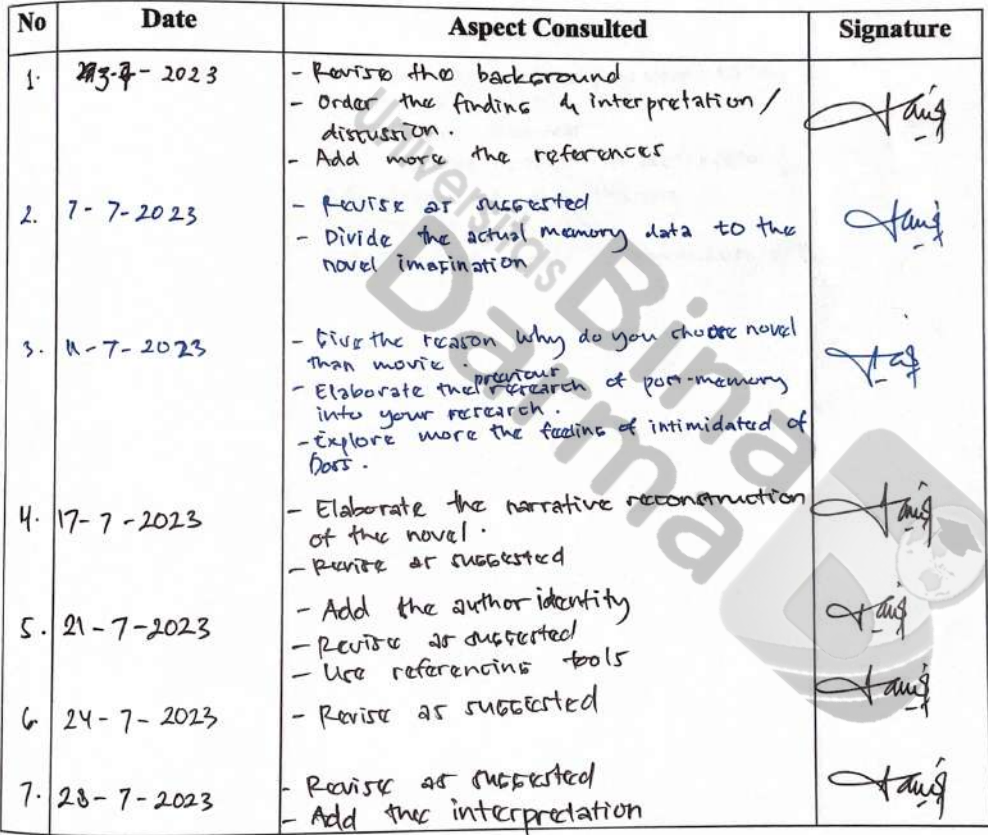 No Date Aspect Consulted Signature
1. 3-7-2023 - Revise the background
- Order the finding & interpretation /
discussion.
- Add more the references
2. 7-7-2023 - Revise as suggested
- Divide the actual memory data to the
novel imagination
3. 11-7-2023 - Give the reason why do you choose novel
than movie.
- Elaborate the previous research of post-memory
into your research.
- Explore more the feeling of intimidated of
boss.
4. 17-7-2023 - Elaborate the narrative reconstruction
of the novel.
- Revise as suggested
5. 21-7-2023 - Add the author identity
- Revise as suggested
- Use referencing tools
6. 24-7-2023 - Revise as suggested
7. 28-7-2023 - Revise as suggested
- Add the interpretation
Universitas
Bina
Darma